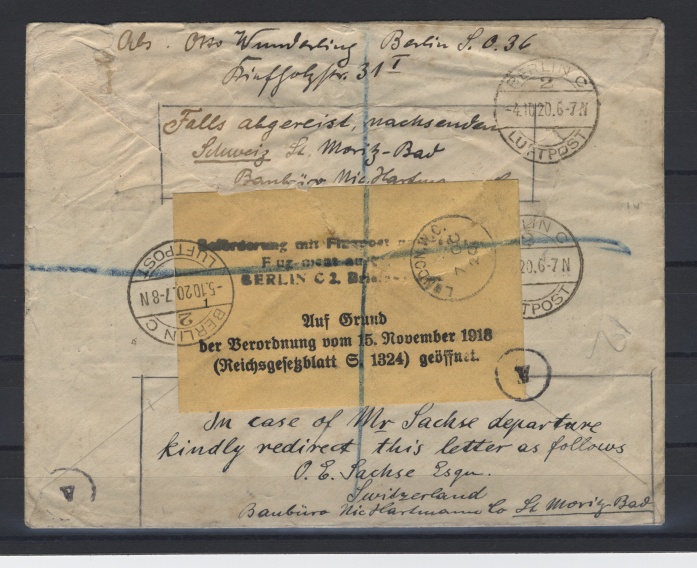 Abs. Otto Wunderling Berlin S.O. 36
Kiefholzstr. 31 I
BERLIN C
2
-4.10.20.6-7 N
1
LUFTPOST
Falls abgereist, nachsenden
Schweiz St. Moritz-Bad
Baubüro Nic. Hartmann
Beförderung mit Flugpost
BERLIN C 2.
LONDON W.C.
BERLIN C
20.6-7 N
LUFTPOST
LUFTPOST
1
-5.10.20.7-8 N
2
BERLIN C
Auf Grund
der Verordnung vom 15. November 1918
(Reichsgesetzblatt S. 1324) geöffnet.
A
In case of Mr Sachse departure
kindly redirect this letter as follows
O. E. Sachse Esqu.
Switzerland
Baubüro Nic Hartmann Co St Moritz-Bad
A